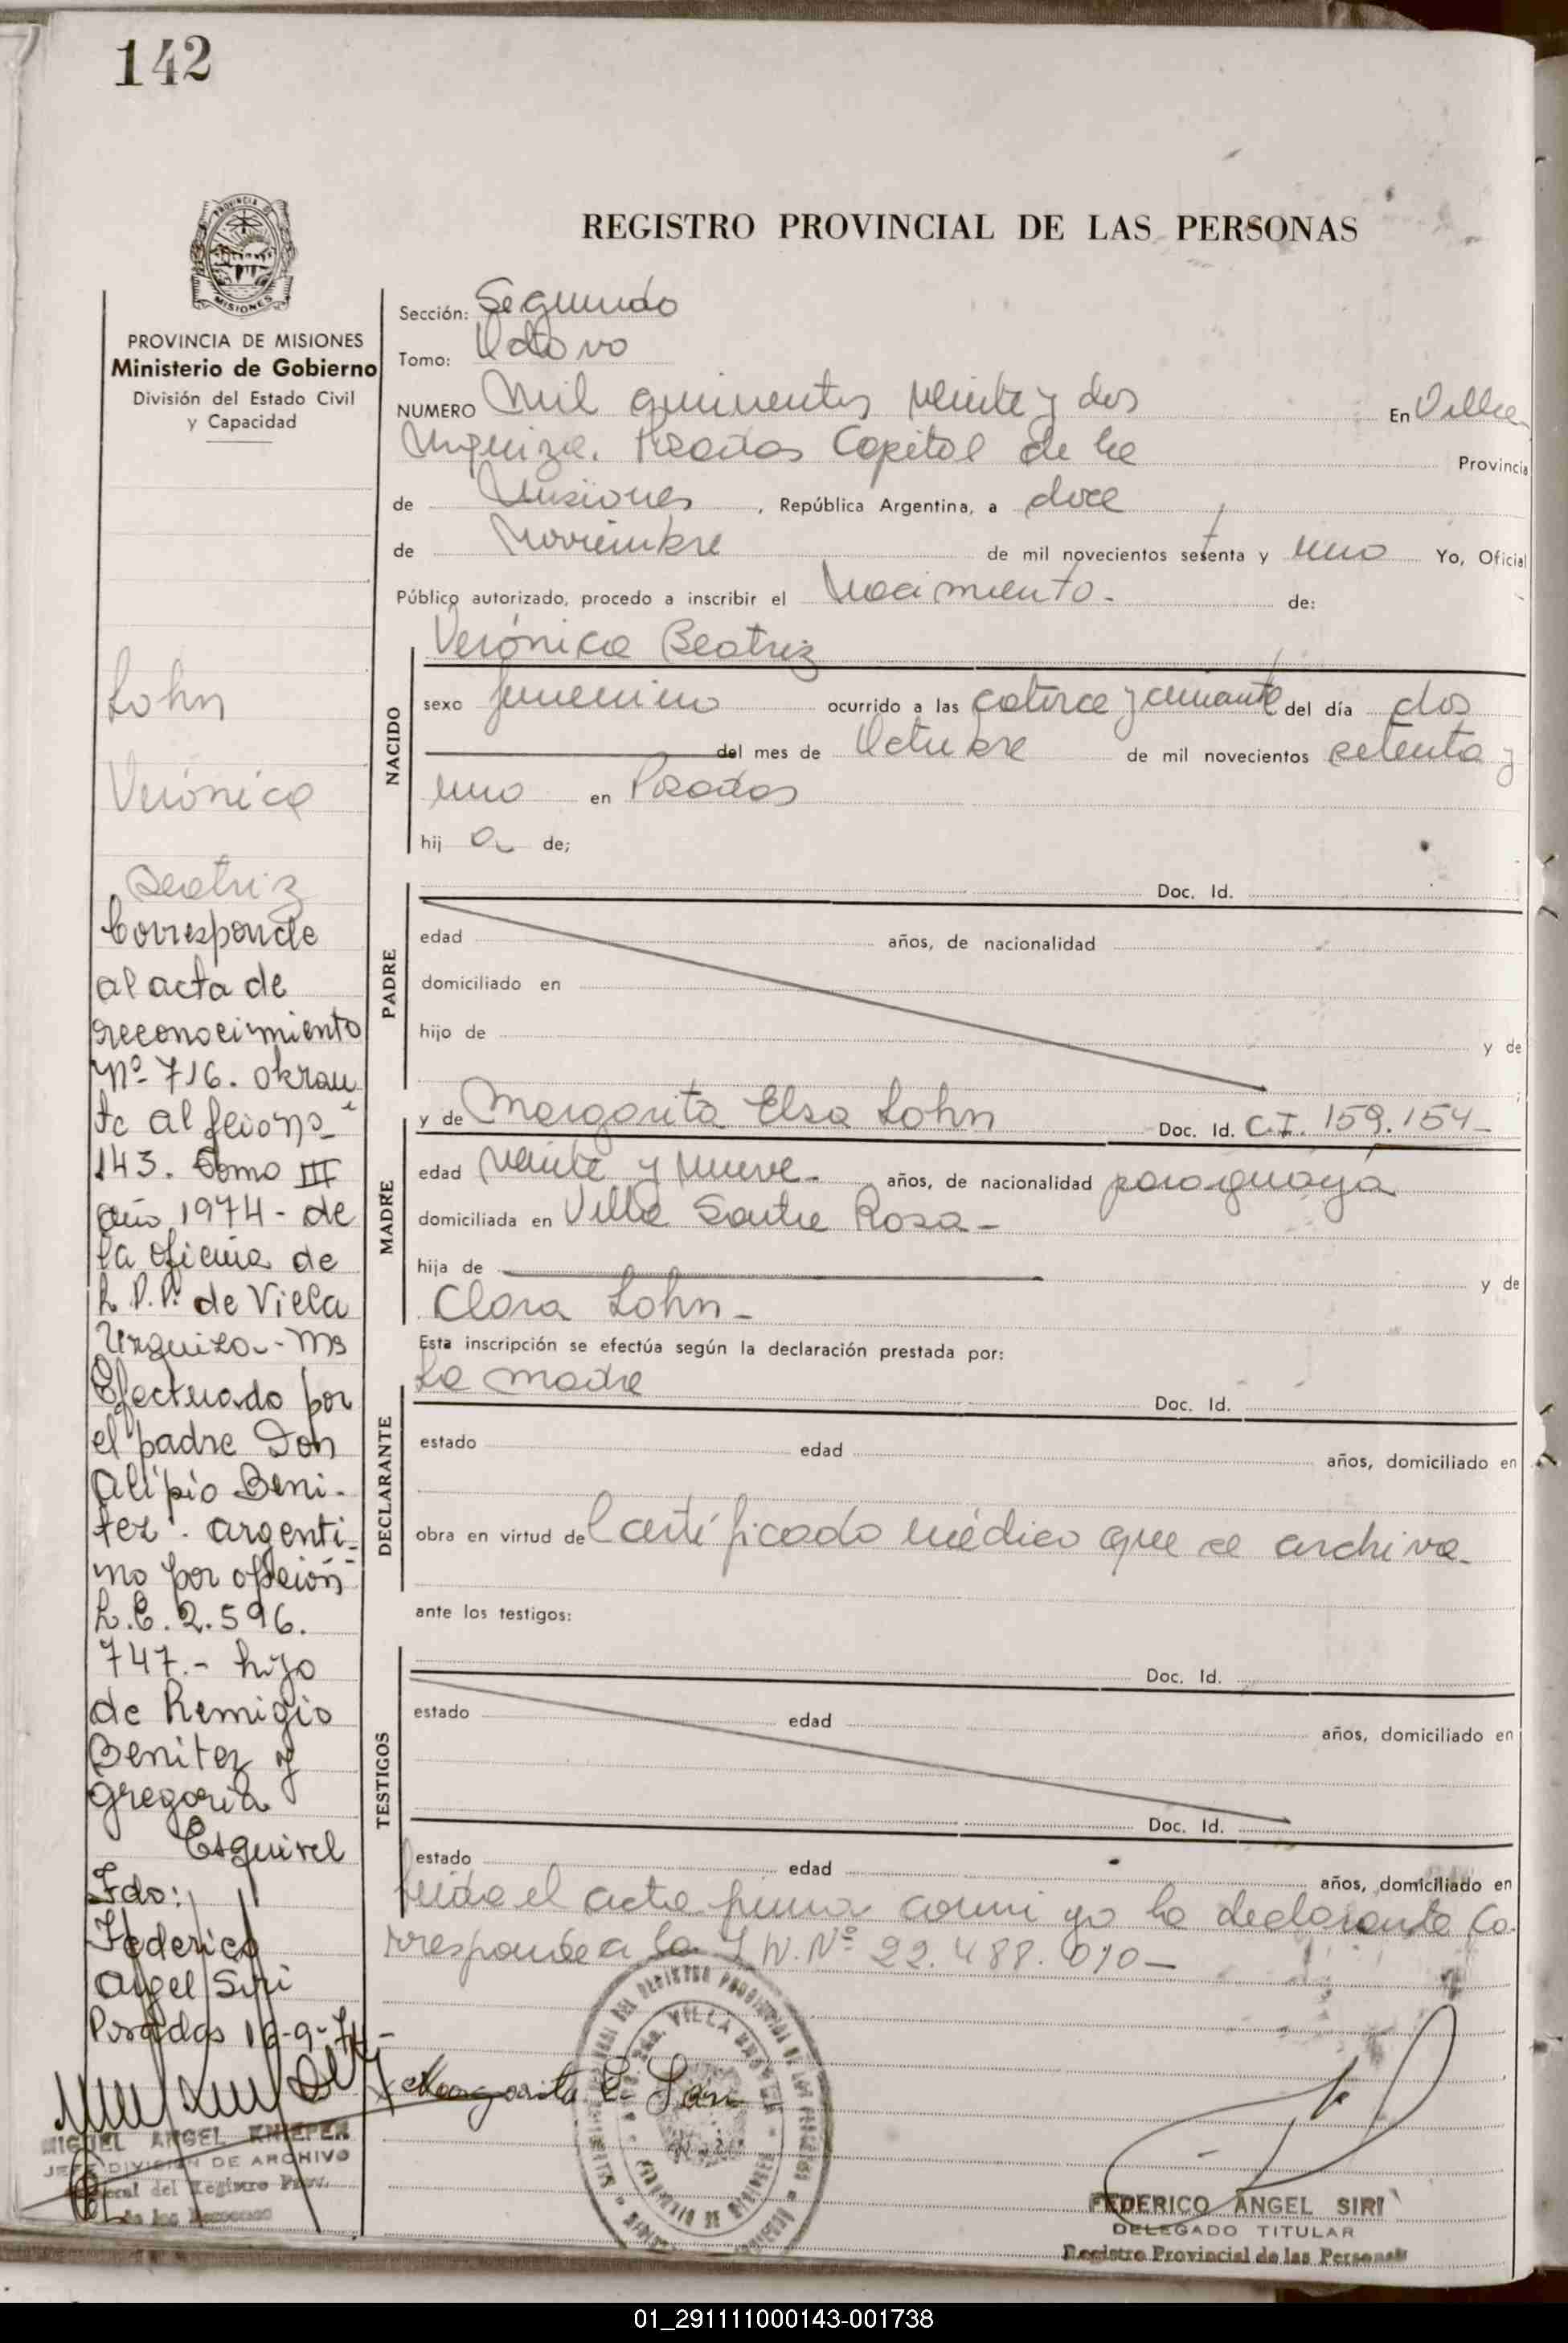 142
PROVINCIA DE MISIONES
MISIONES
PROVINCIA DE MISIONES
Ministerio de Gobierno
División del Estado Civil
y Capacidad
Lohn
Verónica
Beatriz
Corresponde
al acta de
reconocimiento
Nº 716. obran
te al folio nº
143. Tomo III
año 1974 - de
la oficina de
R.P.P. de Villa
Urquiza - Ms
Efectuado por
el padre Don
Alipio Beni-
tez. argenti-
no por opción
L.E. 2.596.
747.- hijo
de Remigio
Benitez y
Gregoria
Esquivel
Fdo:
Federico
Angel Siri
Posadas 19-9-74-
MIGUEL ANGEL KNIEPER
JEFE DIVISION DE ARCHIVO
General del Registro Prov.
de las Personas
REGISTRO PROVINCIAL DE LAS PERSONAS
Sección: Segundo
Tomo: Octavo
NUMERO Mil quinientos veinte y dos En Villa
Urquiza. Posadas Capital de la Provincia
de Misiones, República Argentina, a doce
de Noviembre de mil novecientos setenta y uno Yo, Oficial
Público autorizado, procedo a inscribir el Nacimiento. de:
NACIDO
Verónica Beatriz
sexo femenino ocurrido a las catorce y cincuenta del día dos
del mes de Octubre de mil novecientos setenta y
uno en Posadas
hij a de;
PADRE
Doc. Id.
edad años, de nacionalidad
domiciliado en
hijo de y de
MADRE
y de Margarita Elsa Lohn Doc. Id. C.I. 159.154-
edad veinte y nueve. años, de nacionalidad paraguaya
domiciliada en Villa Santa Rosa-
hija de y de
Clara Lohn-
Esta inscripción se efectúa según la declaración prestada por:
DECLARANTE
La madre Doc. Id.
estado edad años, domiciliado en
obra en virtud del certificado médico que se archiva-
ante los testigos:
TESTIGOS
Doc. Id.
estado edad años, domiciliado en
Doc. Id.
estado edad años, domiciliado en
Leída el acta firma conmi go la declarante Co-
rresponde a la I N. Nº 22.488.010-
Margarita E. Lon
FEDERICO ANGEL SIRI
DELEGADO TITULAR
Registro Provincial de las Personas
01_291111000143-001738